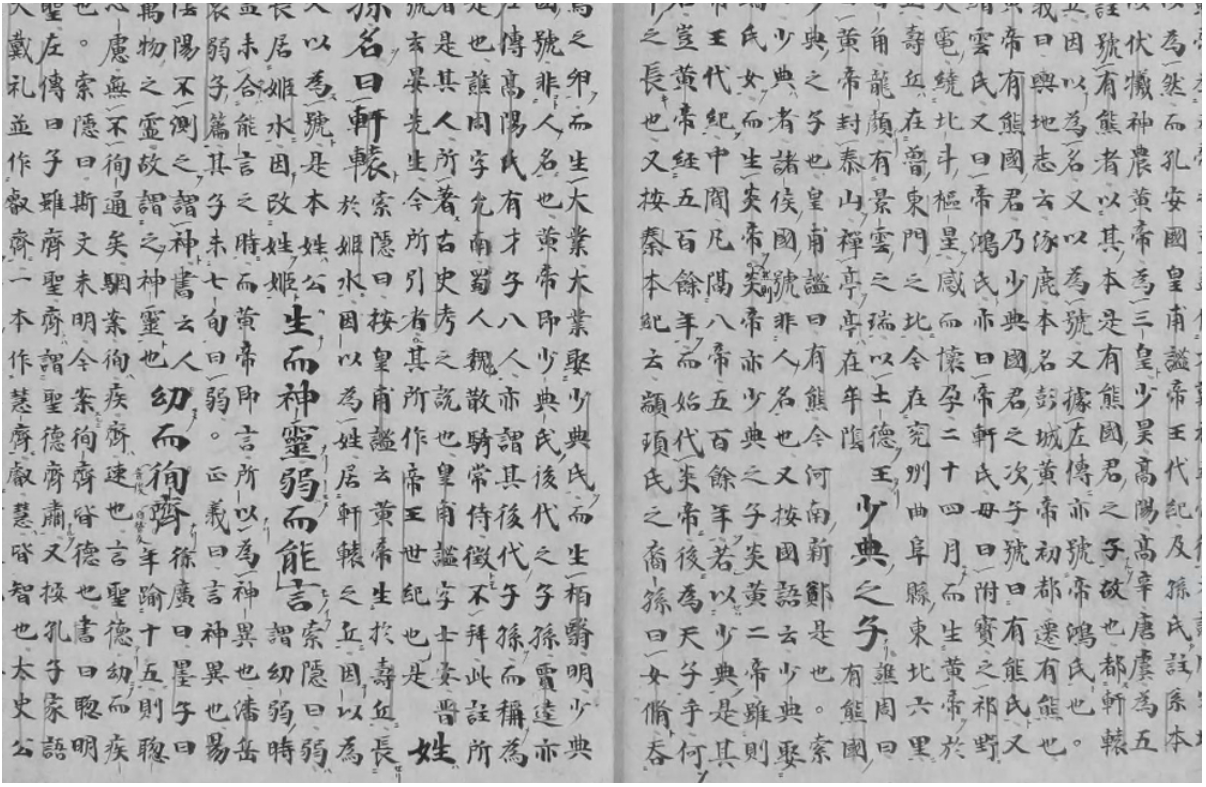 以為然而孔安國皇甫謐帝王代紀及孫氏註系本
伏犧神農黄帝為三皇少昊高陽高辛唐虞為五
註號有熊者以其本是有熊國君之子故也都軒轅
因以為名又以為號又據左傳亦號帝鴻氏也。
義曰輿地志云涿鹿本名彭城黄帝初都遷有熊也
帝有熊國君乃少典國君之次子號曰有熊氏又
雲氏又曰帝鴻氏亦曰帝軒氏母曰附寳之祁野
大電繞北斗樞星感而懷孕二十四月而生黄帝於
壽丘在魯東門之北今在兖州曲阜縣東北六里
角龍顏有景雲之瑞以土德王
黄帝封泰山禪亭亭在年陰
少典之子
譙周曰
有熊國
典之子也皇甫謐曰有熊今河南新鄭是也。索
少典者諸侯國號非人名也又按國語云少典娶
氏女而生炎帝炎帝亦少典之子炎黄二帝雖則
王代紀中間凡隔八帝五百餘年若以少典是其
豈黄帝経五百餘年而始代炎帝後為天子乎何
之長也又按秦本紀云顓頊氏之裔孫曰女脩呑
之卵而生大業大業娶少典氏而生栢翳明少典
號非人名也黄帝即少典氏後代之子孫賈逵亦
傳高陽氏有才子八人亦謂其後代子孫而稱為
是也譙周字允南蜀人魏散騎常侍徴不拜此註所
者是其人所著古史考之説也皇甫謐字士安晉
號玄晏先生今所引者其所作帝王世紀也是
姓
名曰軒轅
索隱曰按皇甫謐云黄帝生於壽丘長
於姬水因以為姓居軒轅之丘因以為
以為號是本姓公
居姬水因改姓姬
生而神靈弱而能言
索隱曰弱
謂幼弱時
未合能言之時而黄帝即言所以為神異也潘岳
哀弱子篇其子未七旬曰弱。正義曰言神異也易
陰陽不測之謂神書云人
萬物之靈故謂之神靈也
幼而徇齊
徐廣曰墨子曰
年踰十五則聦
心慮無不徇通矣駰案徇疾齊速也言聖德幼而疾
也。索隱曰斯文未明今案徇齊皆德也書曰聦明
聖左傳曰子雖齊聖齊謂聖德齊肅又按孔子家語
大戴礼並作叡齊一本作慧齊叡慧皆智也太史公